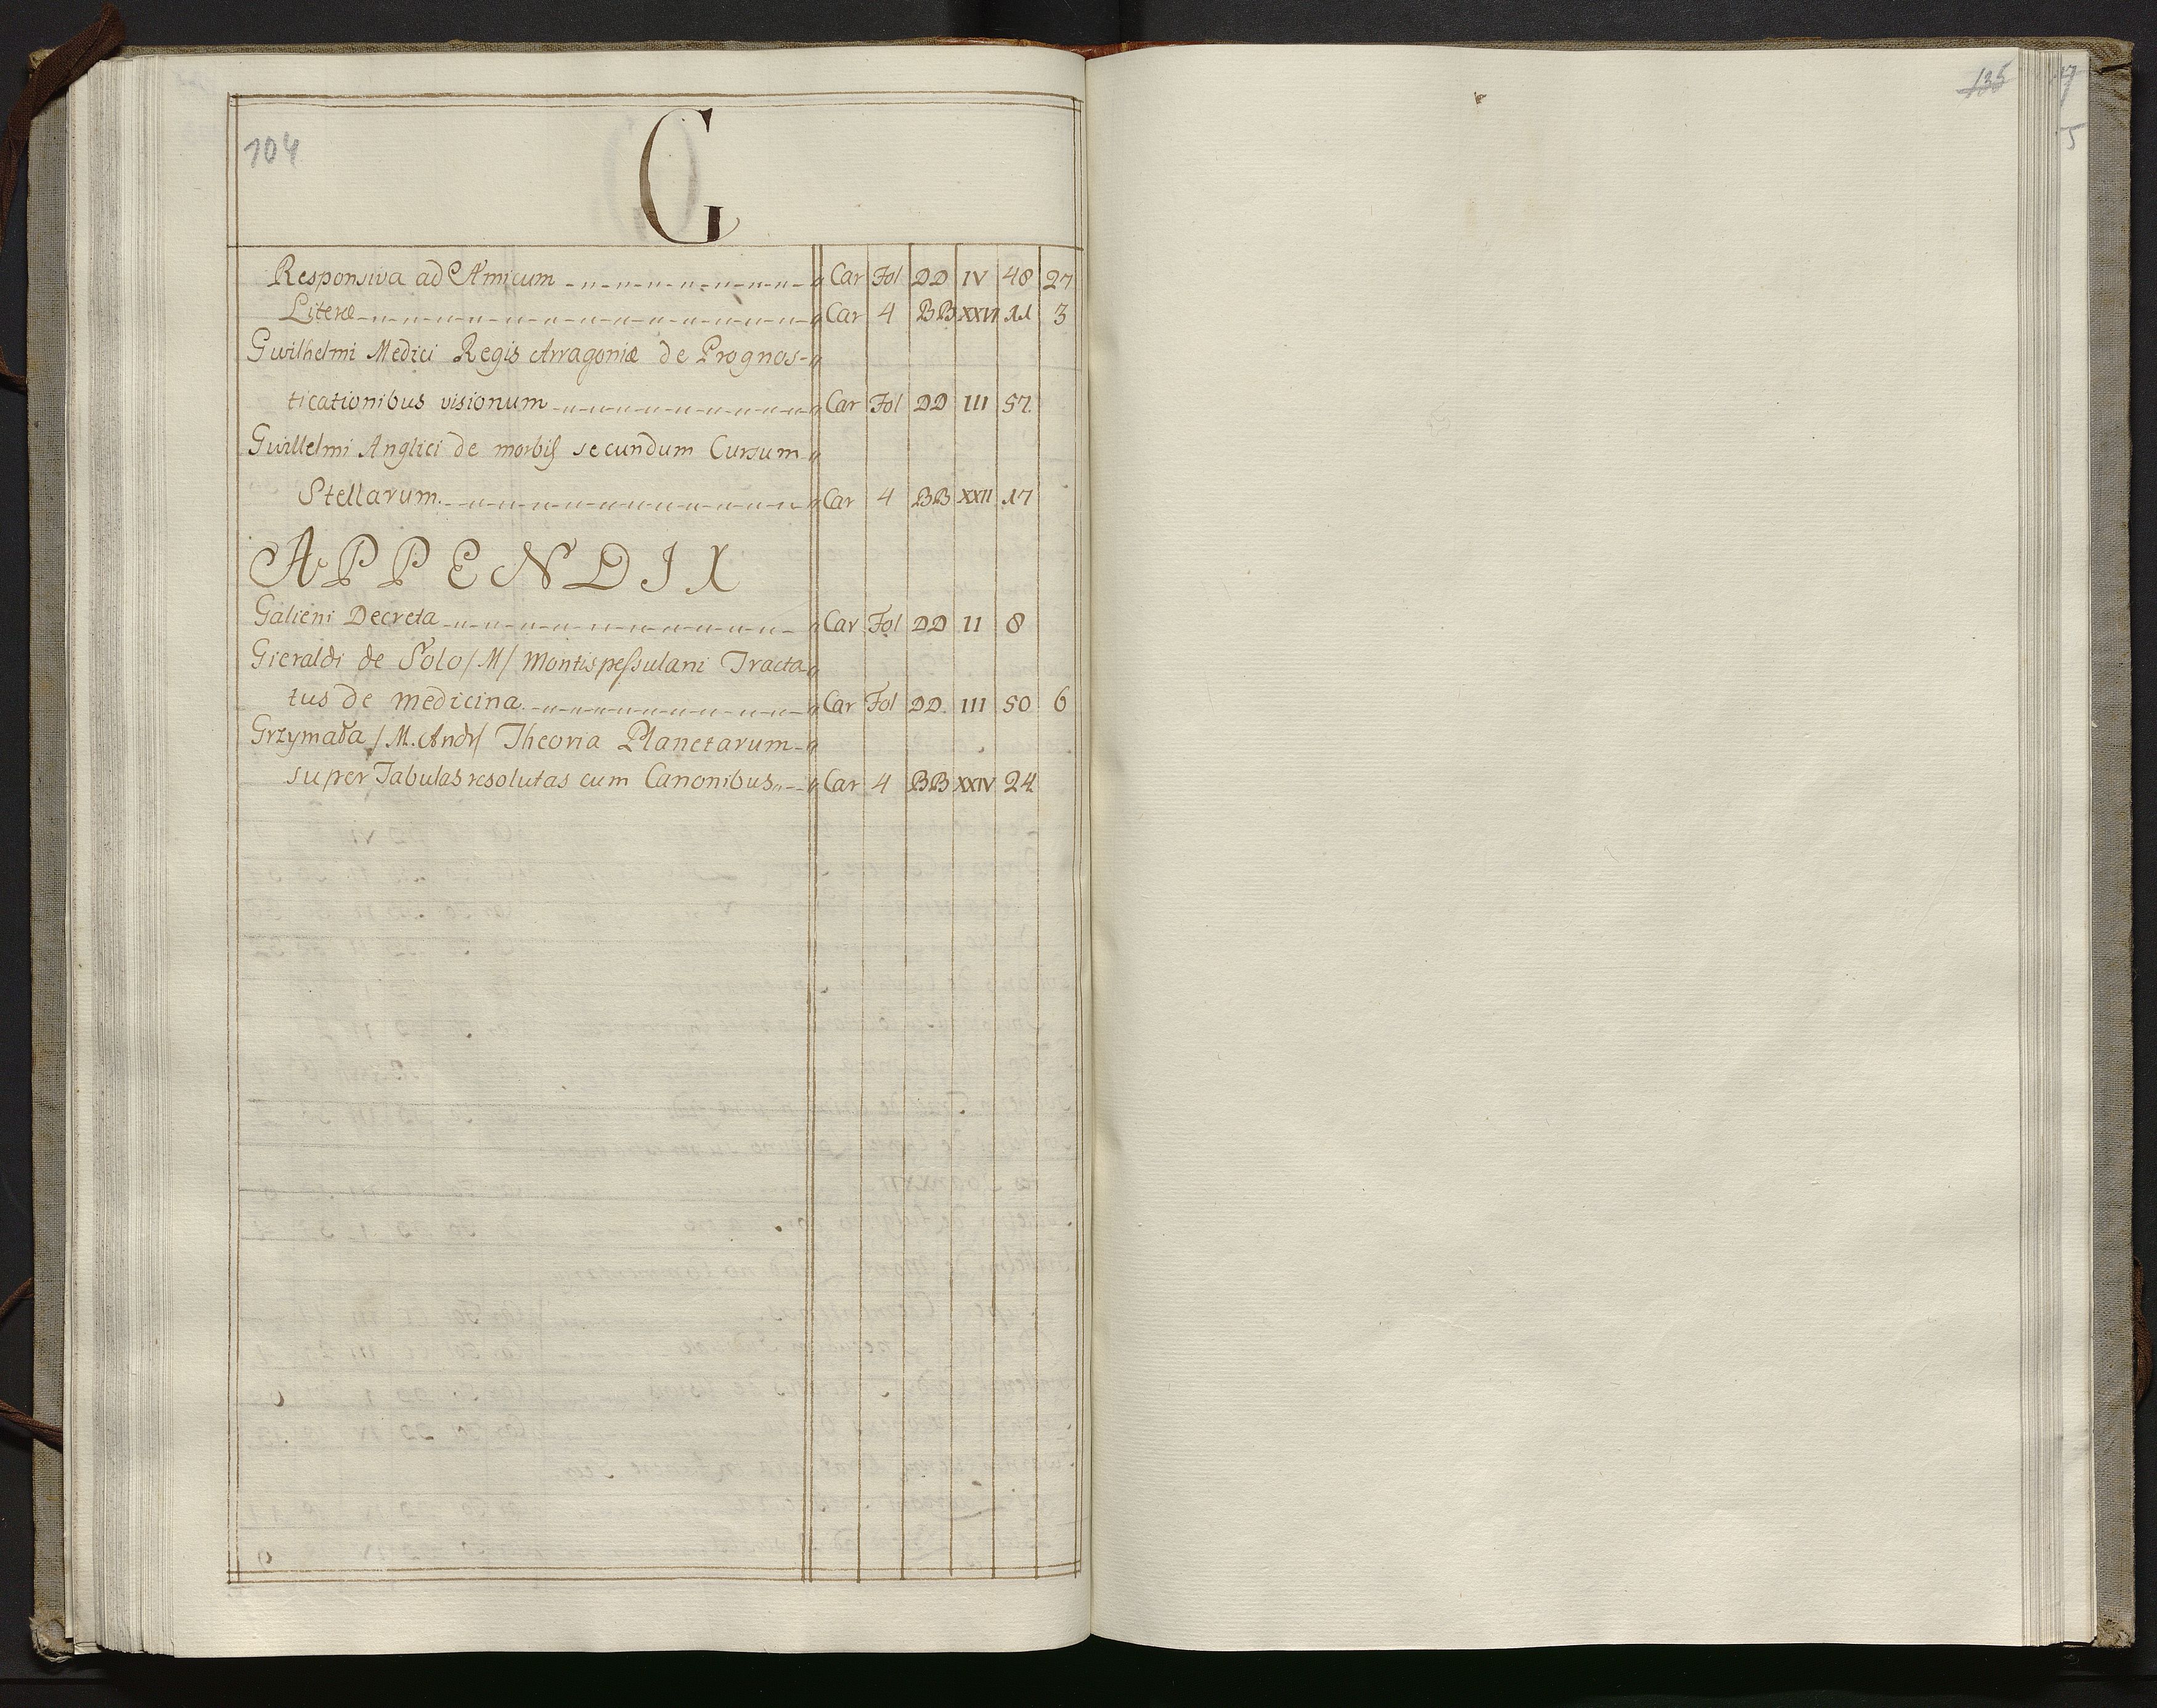 104
G
Responsiva ad Amicum Car Fol DD IV 48 27
Literæ Car 4 BB XXVI 11 3
Guilhelmi Medici Regis Arragoniæ de Prognos-
ticationibus visionum Car Fol DD III 57.
Guillelmi Anglici de morbis secundum Cursum
Stellarum. Car 4 BB XXII 17
APPENDIX
Galieni Decreta Car Fol DD II 8
Gieraldi de Solo /M/ Montispessulani Tracta-
tus de medicina. Car Fol DD III 50 6
Grzymała /M. And/ Theoria Planetarum
super Tabulas resolutas cum Canonibus Car 4 BB XXIV 24
135